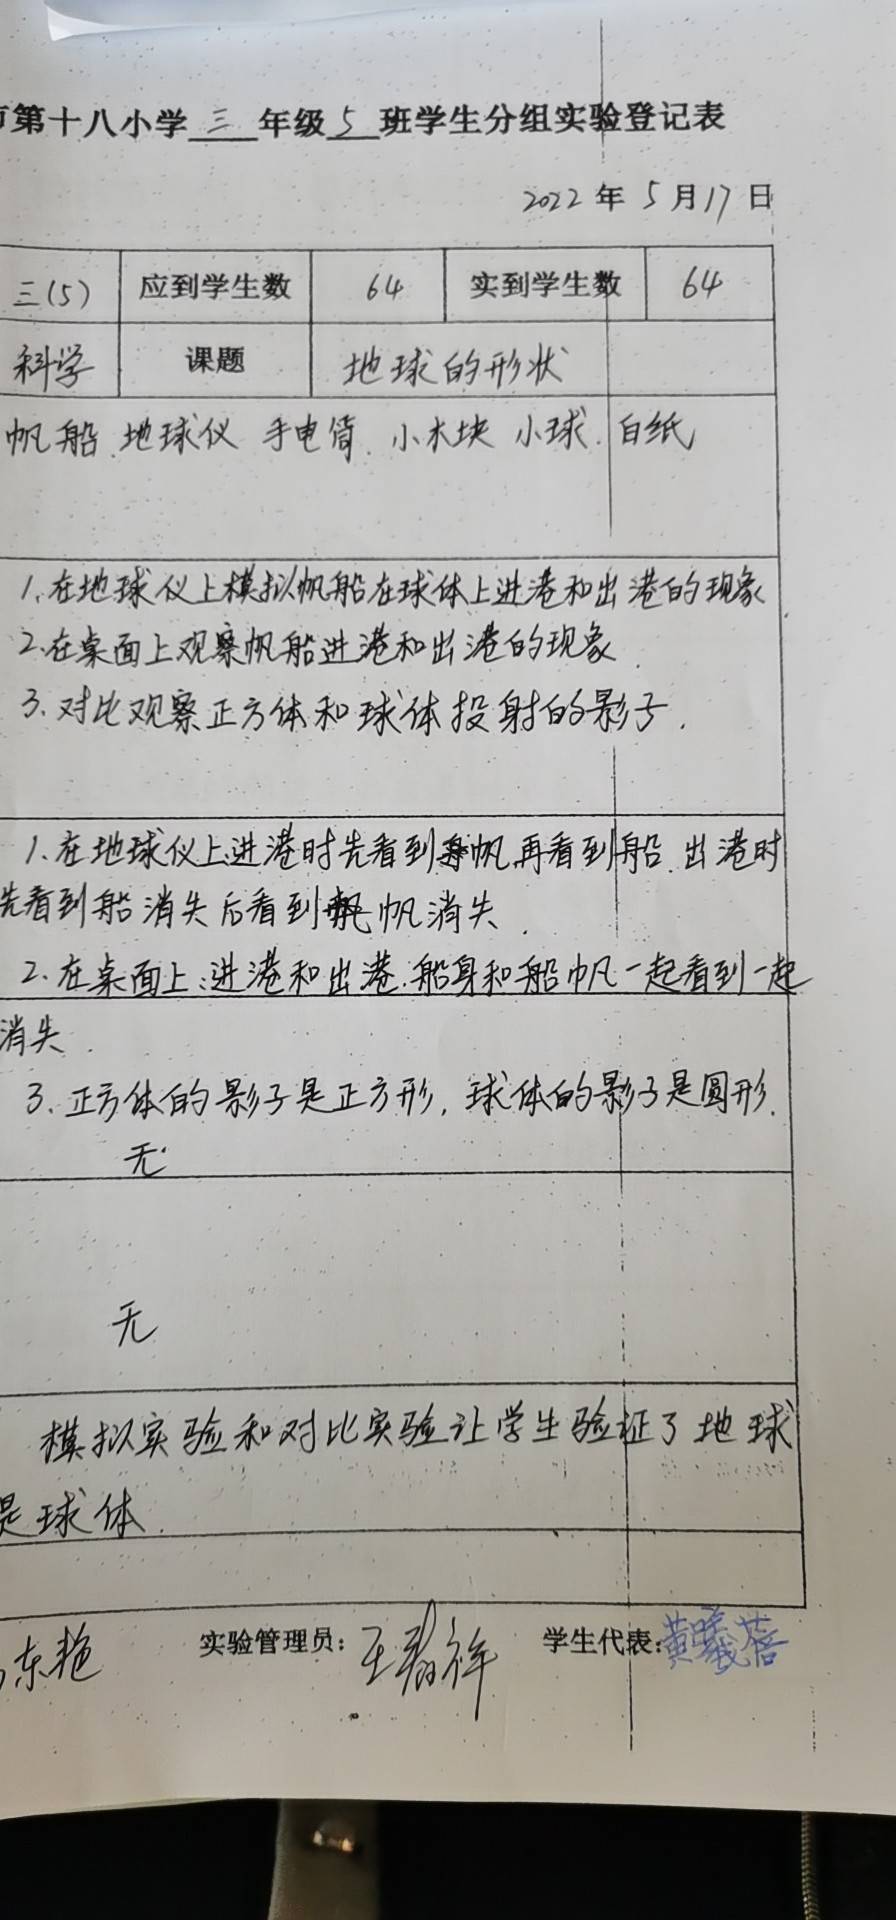 第十八小学三年级5班学生分组实验登记表
2022年5月17日
三(5) 应到学生数 64 实到学生数 64
科学 课题 地球的形状
帆船.地球仪 手电筒.小木块 小球.白纸
1.在地球仪上模拟帆船在球体上进港和出港的现象
2.在桌面上观察帆船进港和出港的现象.
3.对比观察正方体和球体投射的影子.
1.在地球仪上:进港时先看到帆再看到船.出港时
先看到船消失后看到帆消失.
2.在桌面上:进港和出港.船身和船帆一起看到一起
消失.
3.正方体的影子是正方形,球体的影子是圆形.
无.
无
模拟实验和对比实验让学生验证了地球
是球体.
东艳 实验管理员: 学生代表:黄曦蓓